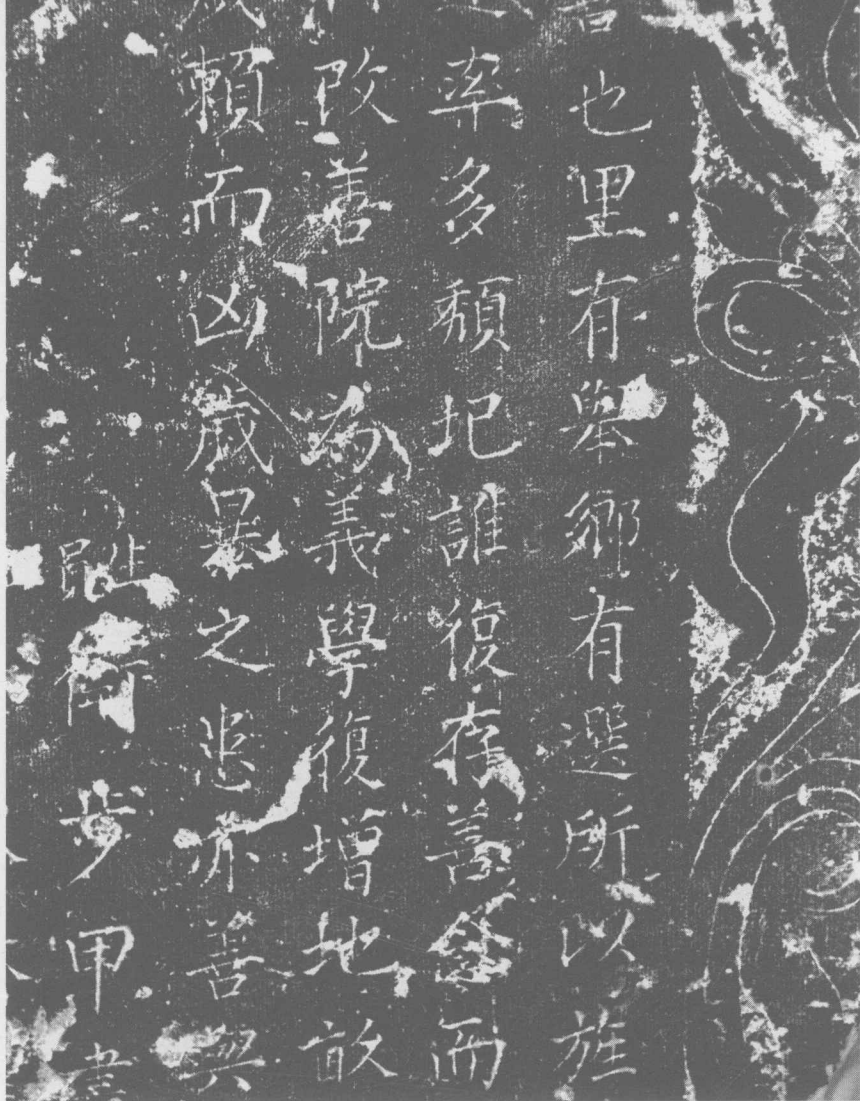 也里有有舉鄉有選所以旌
率多頹圯誰復存善念而
改善院為義學復增地畝
賴而凶歲暴之患亦善舉
步甲書